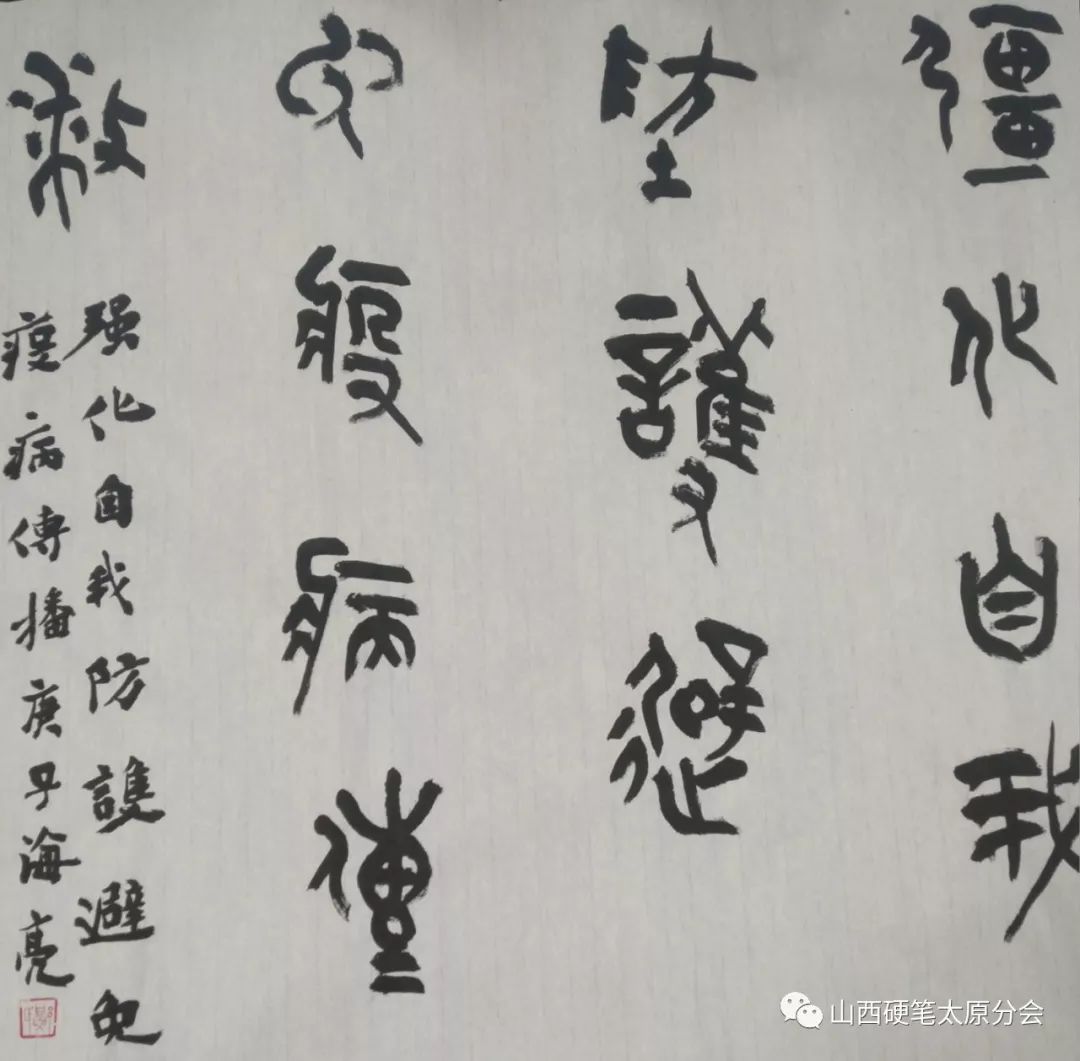 彊化自我
防護避
免疫病傳
播
强化自我防護避免
疫病傳播庚子海亮
山西硬笔太原分会